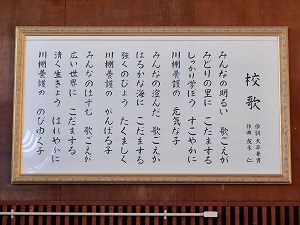 校歌
作詞 大平兼男
作曲 友永 仁
みんなの明るい 歌ごえが
みどりの里に こだまする
しっかり学ぼう すこやかに
川棚養護の 元気な子
みんなの澄んだ 歌ごえが
はるかな海に こだまする
強くのびよう たくましく
川棚養護の がんばる子
みんなのはずむ 歌ごえが
広い世界に こだまする
清く生きよう はれやかに
川棚養護の のびゆく子